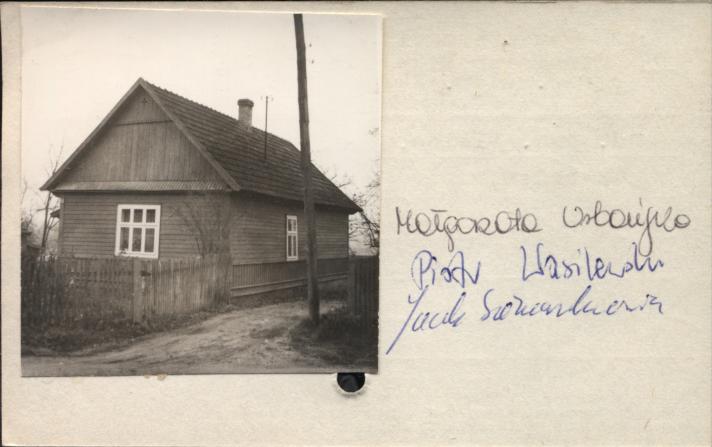 Małgorzata Urbańska
Piotr Wasilewski
Jacek